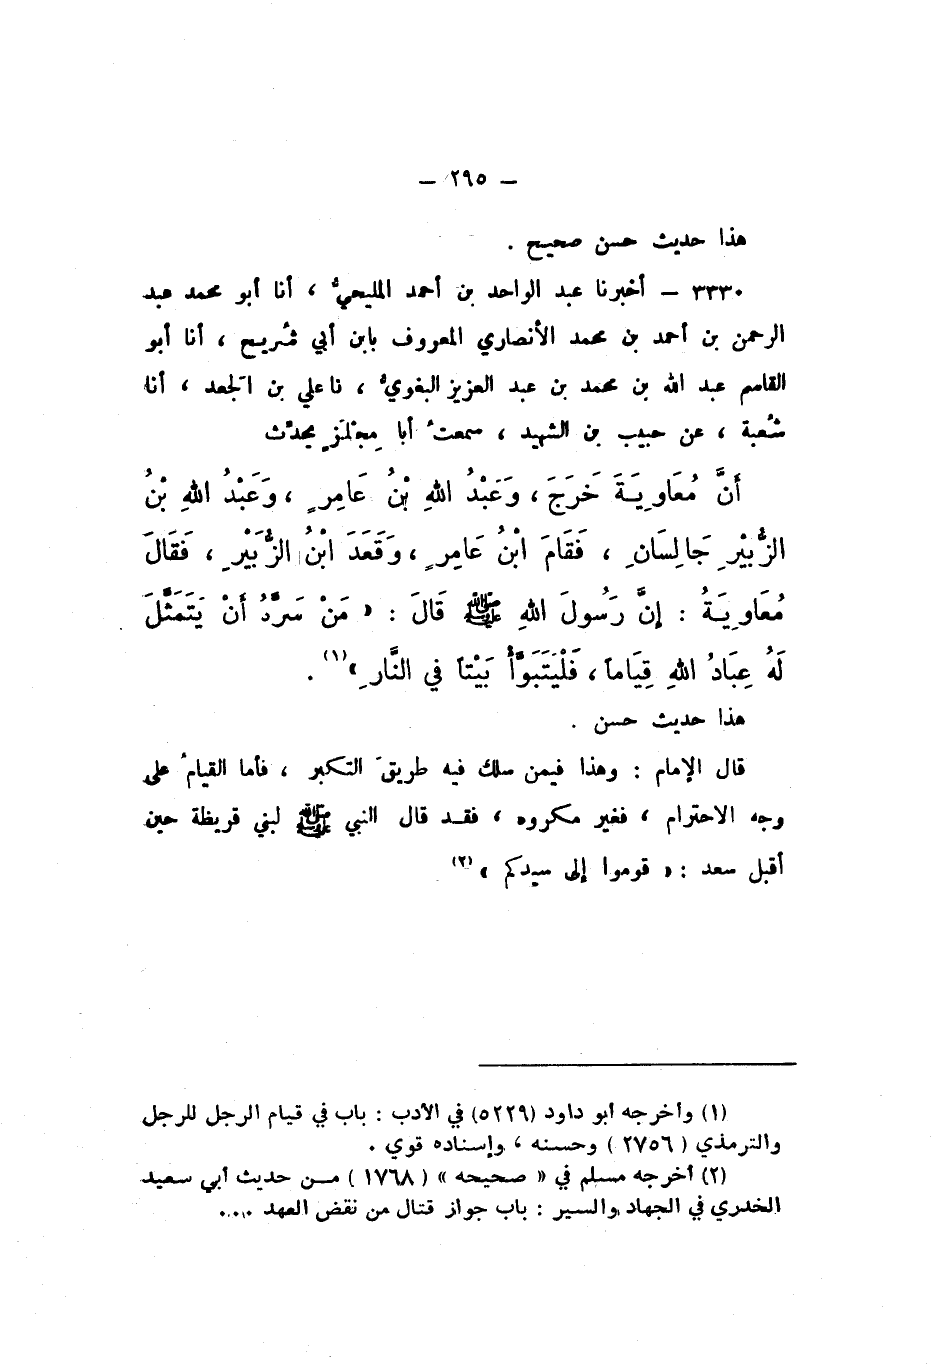 – ٢٩٥ –
هذا حديث حسن صحيح .
٣٣٣٠ – أخبرنا عبد الواحد بن أحمد المليحيُّ ، أنا أبو محمد عبد
الرحمن بن أحمد بن محمد الأنصاري المعروف بابن أبي شُريح ، أنا أبو
القاسم عبد الله بن محمد بن عبد العزيز البغويُّ ، نا علي بن الجعد ، أنا
شُعبة ، عن حبيب بن الشهيد ، سمعتُ أبا مِجْلَزٍ يحدِّث
أَنَّ مُعَاوِيَةَ خَرَجَ ، وَعَبْدُ اللهِ بْنُ عَامِرٍ ، وَعَبْدُ اللهِ بْنُ
الزُّبَيْرِ جَالِسَانِ ، فَقَامَ ابْنُ عَامِرٍ ، وَقَعَدَ ابْنُ الزُّبَيْرِ ، فَقَالَ
مُعَاوِيَةُ : إِنَّ رَسُولَ اللهِ ﷺ قَالَ : « مَنْ سَرَّهُ أَنْ يَتَمَثَّلَ
لَهُ عِبَادُ اللهِ قِيَاماً ، فَلْيَتَبَوَّأْ بَيْتاً فِي النَّارِ »(١) .
هذا حديث حسن .
قال الإمام : وهذا فيمن سلك فيه طريقَ التكبر ، فأما القيامُ على
وجه الاحترام ، فغير مكروه ، فقد قال النبي ﷺ لبني قريظة حين
أقبل سعد : « قوموا إلى سيدكم »(٢)
(١) وأخرجه أبو داود (٥٢٢٩) في الأدب : باب في قيام الرجل للرجل
والترمذي ( ٢٧٥٦ ) وحسنه ، وإسناده قوي .
(٢) أخرجه مسلم في « صحيحه » ( ١٧٦٨ ) من حديث أبي سعيد
الخدري في الجهاد والسير : باب جواز قتال من نقض العهد ....